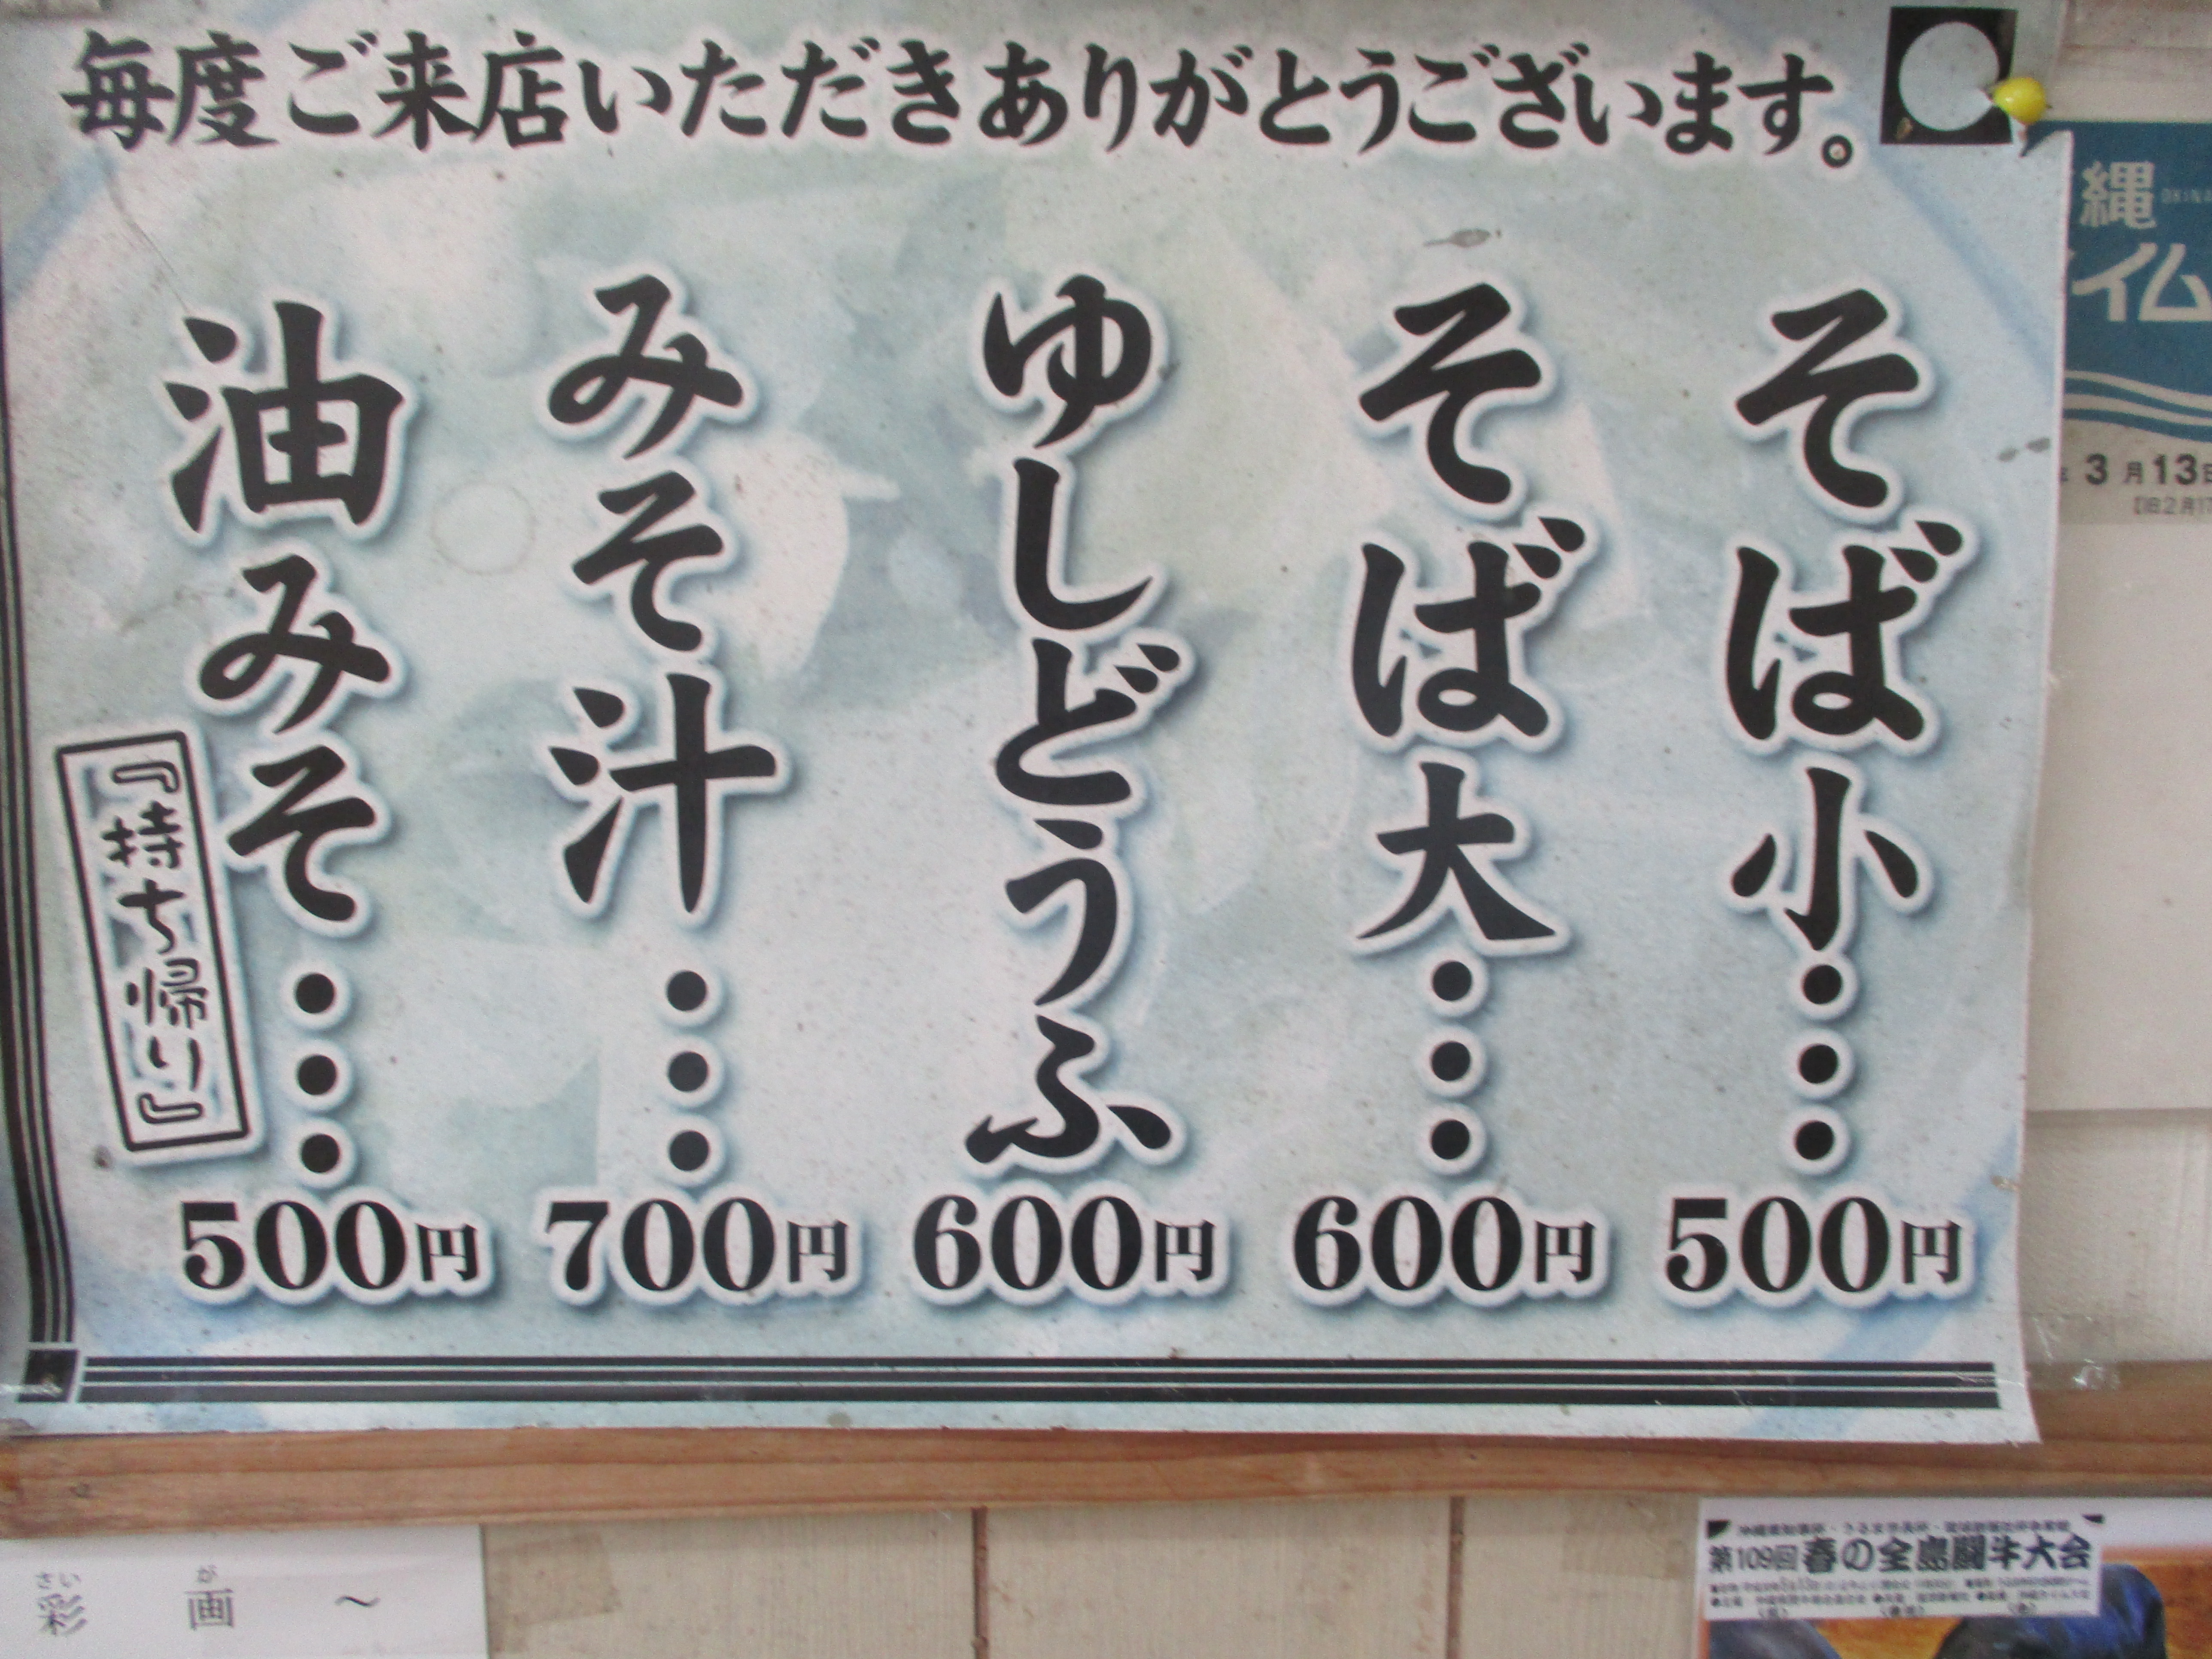 毎度ご来店いただきありがとうございます。
そば小・・・500円
そば大・・・600円
ゆしどうふ600円
みそ汁・・・700円
油みそ・・・500円
『持ち帰り』
縄
イム
3月13日
さい が
彩 画 ～
第109回 春の全島闘牛大会